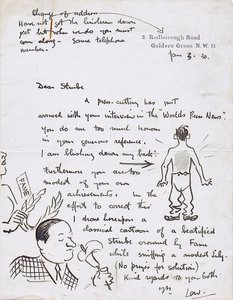 Change of address.
Have not got the linoleum down
yet but when we do you must
come along - Same telephone
number.
8 Rodborough Road
Golders Green N.W. 11
Jan 3. 30.
Dear Strube
A press-cutting has just
arrived with your interview in the "World's Press News"
You do me too much honour
in your generous reference.
I am blushing down my back!
Furthermore you are too
modest of your own
achievements. In the
effort to correct this
I draw hereupon a
classical cartoon of a beatified
Strube crowned by Fame
while sniffing a modest lily.
(No prizes for solution)
Kind regards to you both.
yrs
Low.
FAME